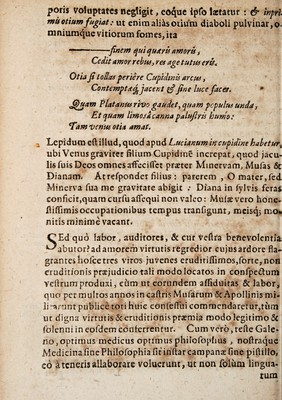 poris voluptates negligit, eóque ipso lætatur : & inpri-
mis otium fugiat: ut enim aliàs otium diaboli pulvinar, o-
mniumque vitiorum fomes, ita
—— finem qui quæris amoris,
Cedit amor rebus, res age tutus eris.
Otia si tollas periêre Cupidinis arcus,
Contemptæq; jacent & sine luce faces.
Quam Platanus rivo gaudet, quam populus unda,
Et quam limosa canna palustris humo:
Tam venus otia amat.
Lepidum est illud, quod apud Lucianum in cupidine habetur,
ubi Venus graviter filium Cupidinẽ increpat, quod jacu-
lis suis Deos omnes affecisset præter Minervam, Musas &
Dianam. At respondet filius: parerem, O mater, sed
Minerva sua me gravitate abigit : Diana in sylvis feras
conficit, quam cursu assequi non valeo: Musæ verò hone-
stissimis occupationibus tempus transigunt, meisq; mo-
nitis minimè vacant.
SEd quò labor, auditores, & cur vestra benevolentia
abutor? ad amorem virtutis regredior cujus adore fla-
grantes hosce tres viros juvenes eruditissimos, forte, non
eruditionis præjudicio tali modo locatos in conspectum
vestrum produxi, cùm ut eorundem assiduitas & labor,
quo per multos annos in castris Musarum & Apollinis mi-
litarunt publicè tori huic confessui commendaretur, tùm
ut digna virtutis & eruditionis præmia modo legitimo &
solenni in eosdem conferrentur. Cum verò, teste Gale-
no, optimus medicus optimus philosophus, nostraque
Medicina sine Philosophia sit instar campanæ sine pistillo,
eò à teneris allaborare voluerunt, ut non solùm lingua-
rum